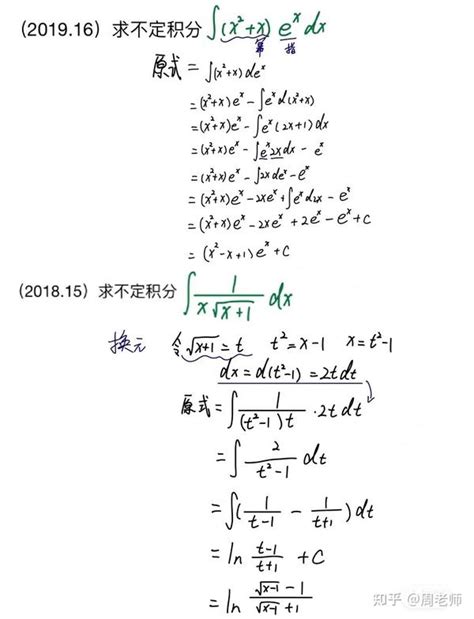 (2019.16) 求不定积分 ∫(x²+x) eˣ dx
幂 指
原式 = ∫(x²+x) deˣ
= (x²+x)eˣ - ∫eˣ d(x²+x)
= (x²+x)eˣ - ∫eˣ(2x+1)dx
= (x²+x)eˣ - ∫eˣ2xdx - eˣ
= (x²+x)eˣ - ∫2xdeˣ - eˣ
= (x²+x)eˣ - 2xeˣ + ∫eˣd2x - eˣ
= (x²+x)eˣ - 2xeˣ + 2eˣ - eˣ + C
= (x²-x+1)eˣ + C
(2018.15) 求不定积分 ∫ 1/(x√(x+1)) dx
换元 令 √(x+1) = t t² = x-1 x = t²-1
dx = d(t²-1) = 2tdt
原式 = ∫ 1/((t²-1)t) · 2t dt
= ∫ 2/(t²-1) dt
= ∫(1/(t-1) - 1/(t+1)) dt
= ln (t-1)/(t+1) + C
= ln (√(x-1) - 1)/(√(x-1) + 1)
知乎 @周老师